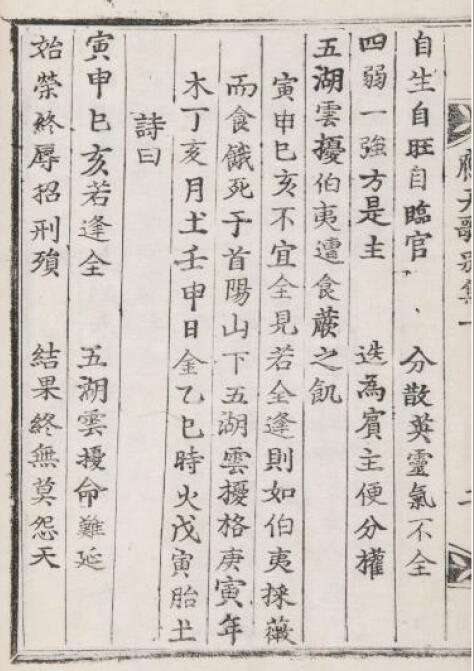 自生自旺自臨官　分散英靈氣不全
四弱一強方是主　迭為賓主便分權
五湖雲擾伯夷遭食蕨之飢
寅申巳亥不宜全見若全逢則如伯夷採薇
而食餓死于首陽山下五湖雲擾格庚寅年
木丁亥月土壬申日金乙巳時火戊寅胎土
詩曰
寅申巳亥若逢全　五湖雲擾命難延
始榮終辱招刑殞　結果終無莫怨天